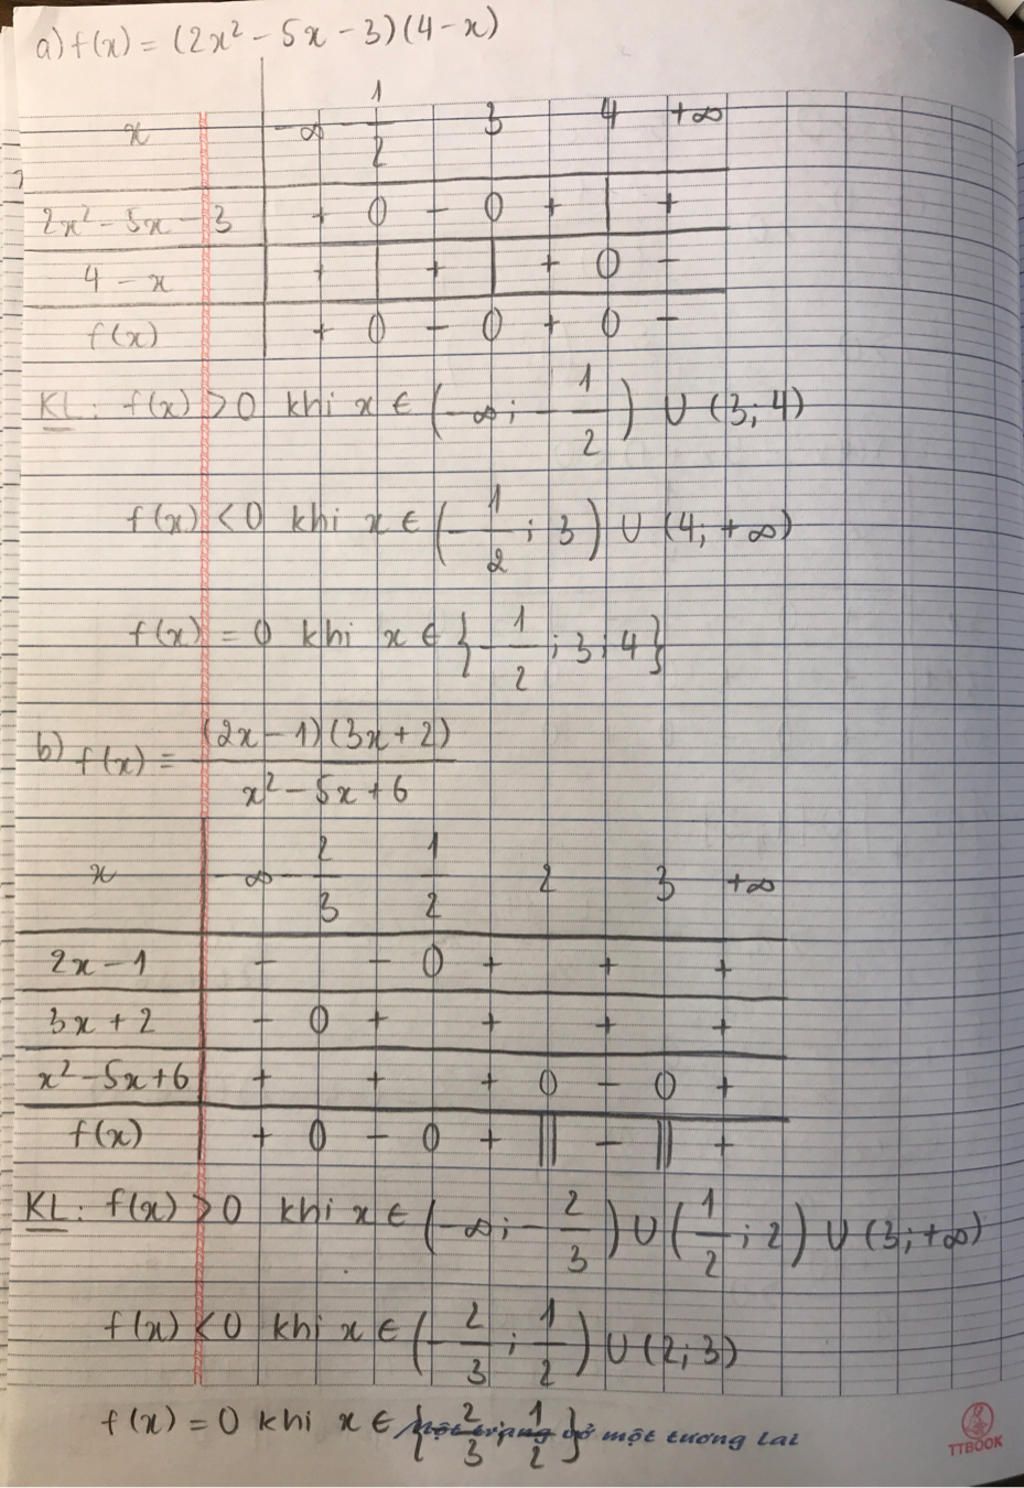 a) f(x) = (2x² - 5x - 3)(4 - x)
x | -∞ -1/2 3 4 +∞
2x² - 5x - 3 | + 0 - 0 + | +
4 - x | + | + | + 0 -
f(x) | + 0 - 0 + 0 -
KL: f(x) > 0 khi x ∈ (-∞; -1/2) ∪ (3; 4)
f(x) < 0 khi x ∈ (-1/2; 3) ∪ (4; +∞)
f(x) = 0 khi x ∈ {-1/2; 3; 4}
b) f(x) = (2x - 1)(3x + 2) / x² - 5x + 6
x | -∞ -2/3 1/2 2 3 +∞
2x - 1 | - - 0 + + +
3x + 2 | - 0 + + + +
x² - 5x + 6 | + + + 0 - 0 +
f(x) | + 0 - 0 + || - || +
KL: f(x) > 0 khi x ∈ (-∞; -2/3) ∪ (1/2; 2) ∪ (3; +∞)
f(x) < 0 khi x ∈ (-2/3; 1/2) ∪ (2; 3)
f(x) = 0 khi x ∈ {-2/3; 1/2}
Một trang vở một tương lai
TTBOOK